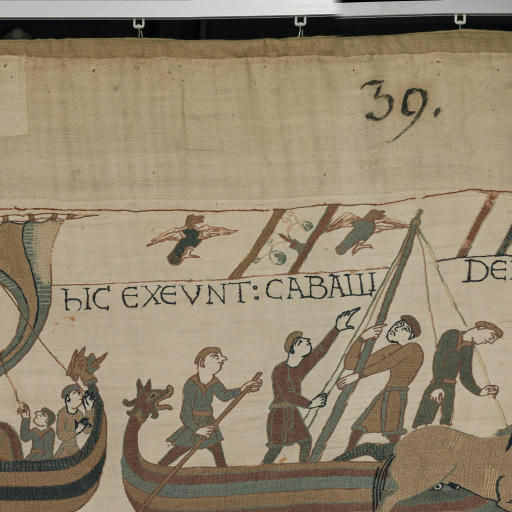 39.
hIC EXEVNT: CABALLI DE